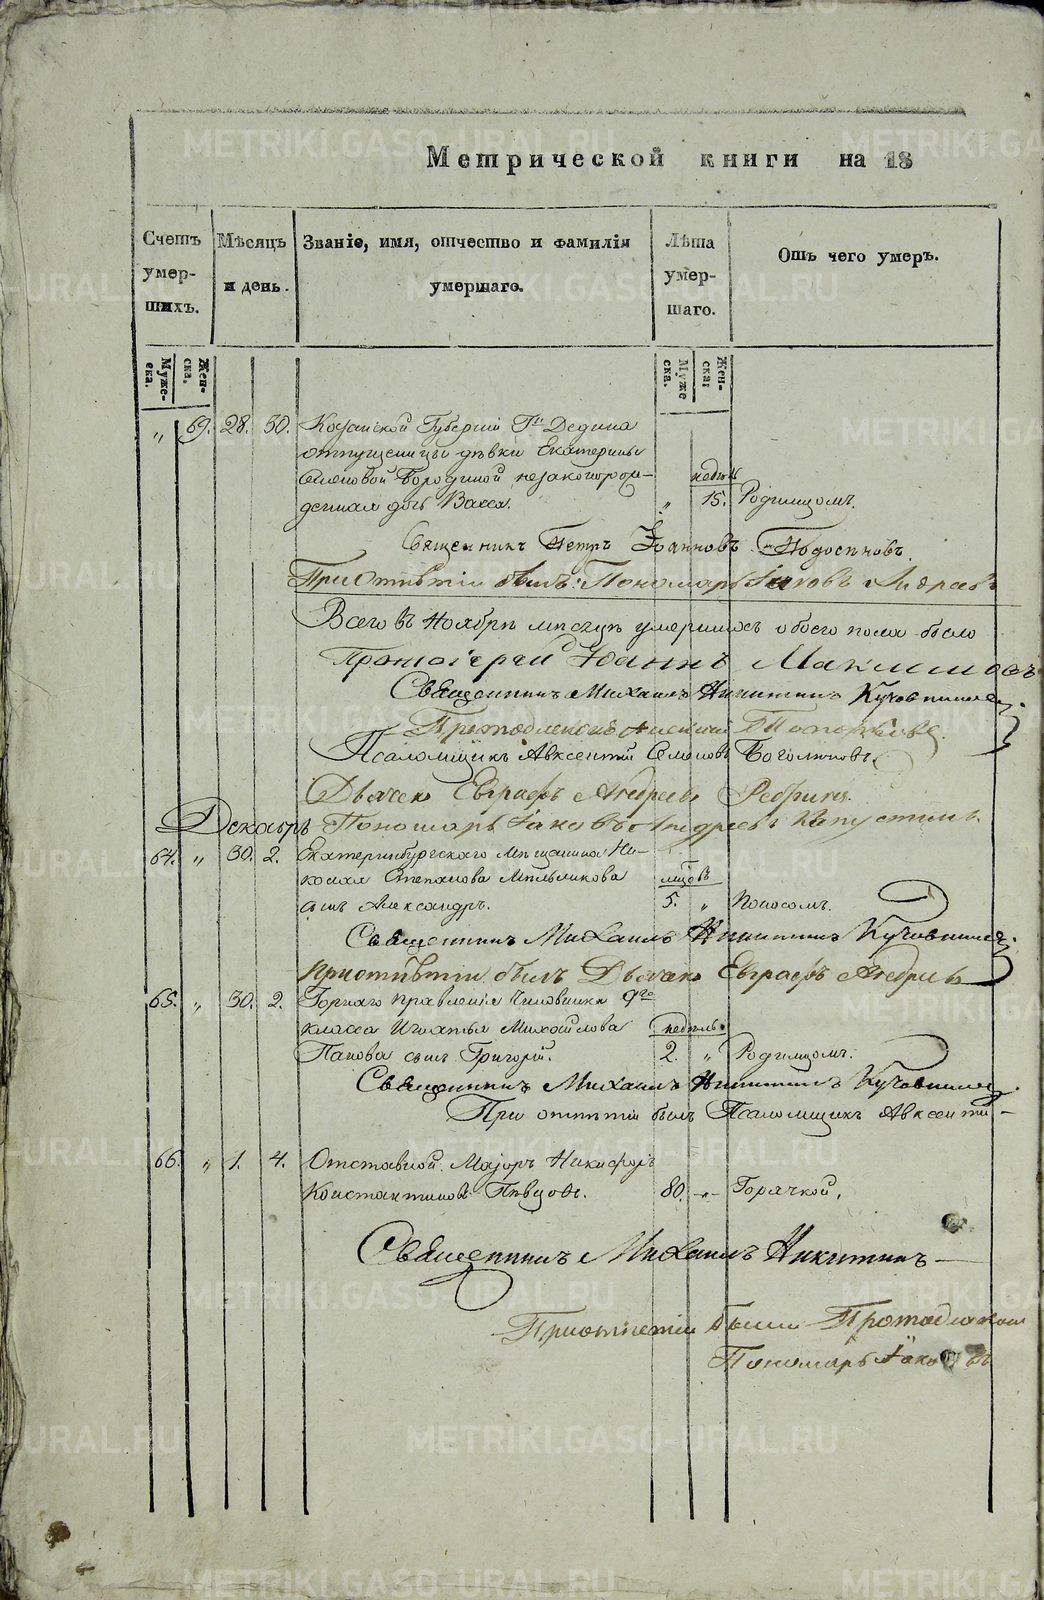 Метрической книги на 18
Счетъ умерших. Мѣсяцъ и день. Званіе, имя, отчество и фамилія умершаго. Лѣта умершаго. Отъ чего умеръ.
Мужеска. Женска. Мужеска. Женска.
„ 69. 28. 30. Казанской Губерніи Гжи Дедина
отпущеницы дѣвки Екатерины
Семеновой Бородиной незаконорож- недѣль
денная дочь Васса. „ 15. Родимцомъ.
Священникъ Петръ Іоанновъ
При отпѣтіи былъ: Пономарь Іаковъ Андреевъ
Всего въ Ноябрѣ месяцѣ умершихъ обоего пола было
Протоіерей Іоаннъ Максимовъ
Священникъ Михаилъ Никитинъ
Протодіаконъ
Псаломщикъ Авксентій Семеновъ Боголюбовъ.
Дьячекъ Евграфъ Андреевъ
Декабрь Пономарь Іаковъ Андреевъ Капустинъ
64. „ 30. 2. Екатеринбургскаго мѣщанина Ни-
колая Степанова Мельникова мцовъ
сынъ Александръ. 5. „ Поносомъ.
Священникъ Михаилъ Никитинъ
При отпѣтіи былъ Дьячекъ Евграфъ Андреевъ
65. „ 30. 2. Горнаго правленія Чиновника 9го
класса Игнатья Михайлова недѣль
Панова сынъ Григорій. 2. „ Родимцомъ.
Священникъ Михаилъ Никитинъ
При отпѣтіи былъ Псаломщикъ Авксентій
66. „ 1. 4. Отставной Маіоръ Никифоръ
Константиновъ Пѣвцовъ. 80. „ Горячкой.
Священникъ Михаилъ Никитинъ
При отпѣтіи были Протодіаконъ
Пономарь Іаковъ
METRIKI.GASO-URAL.RU